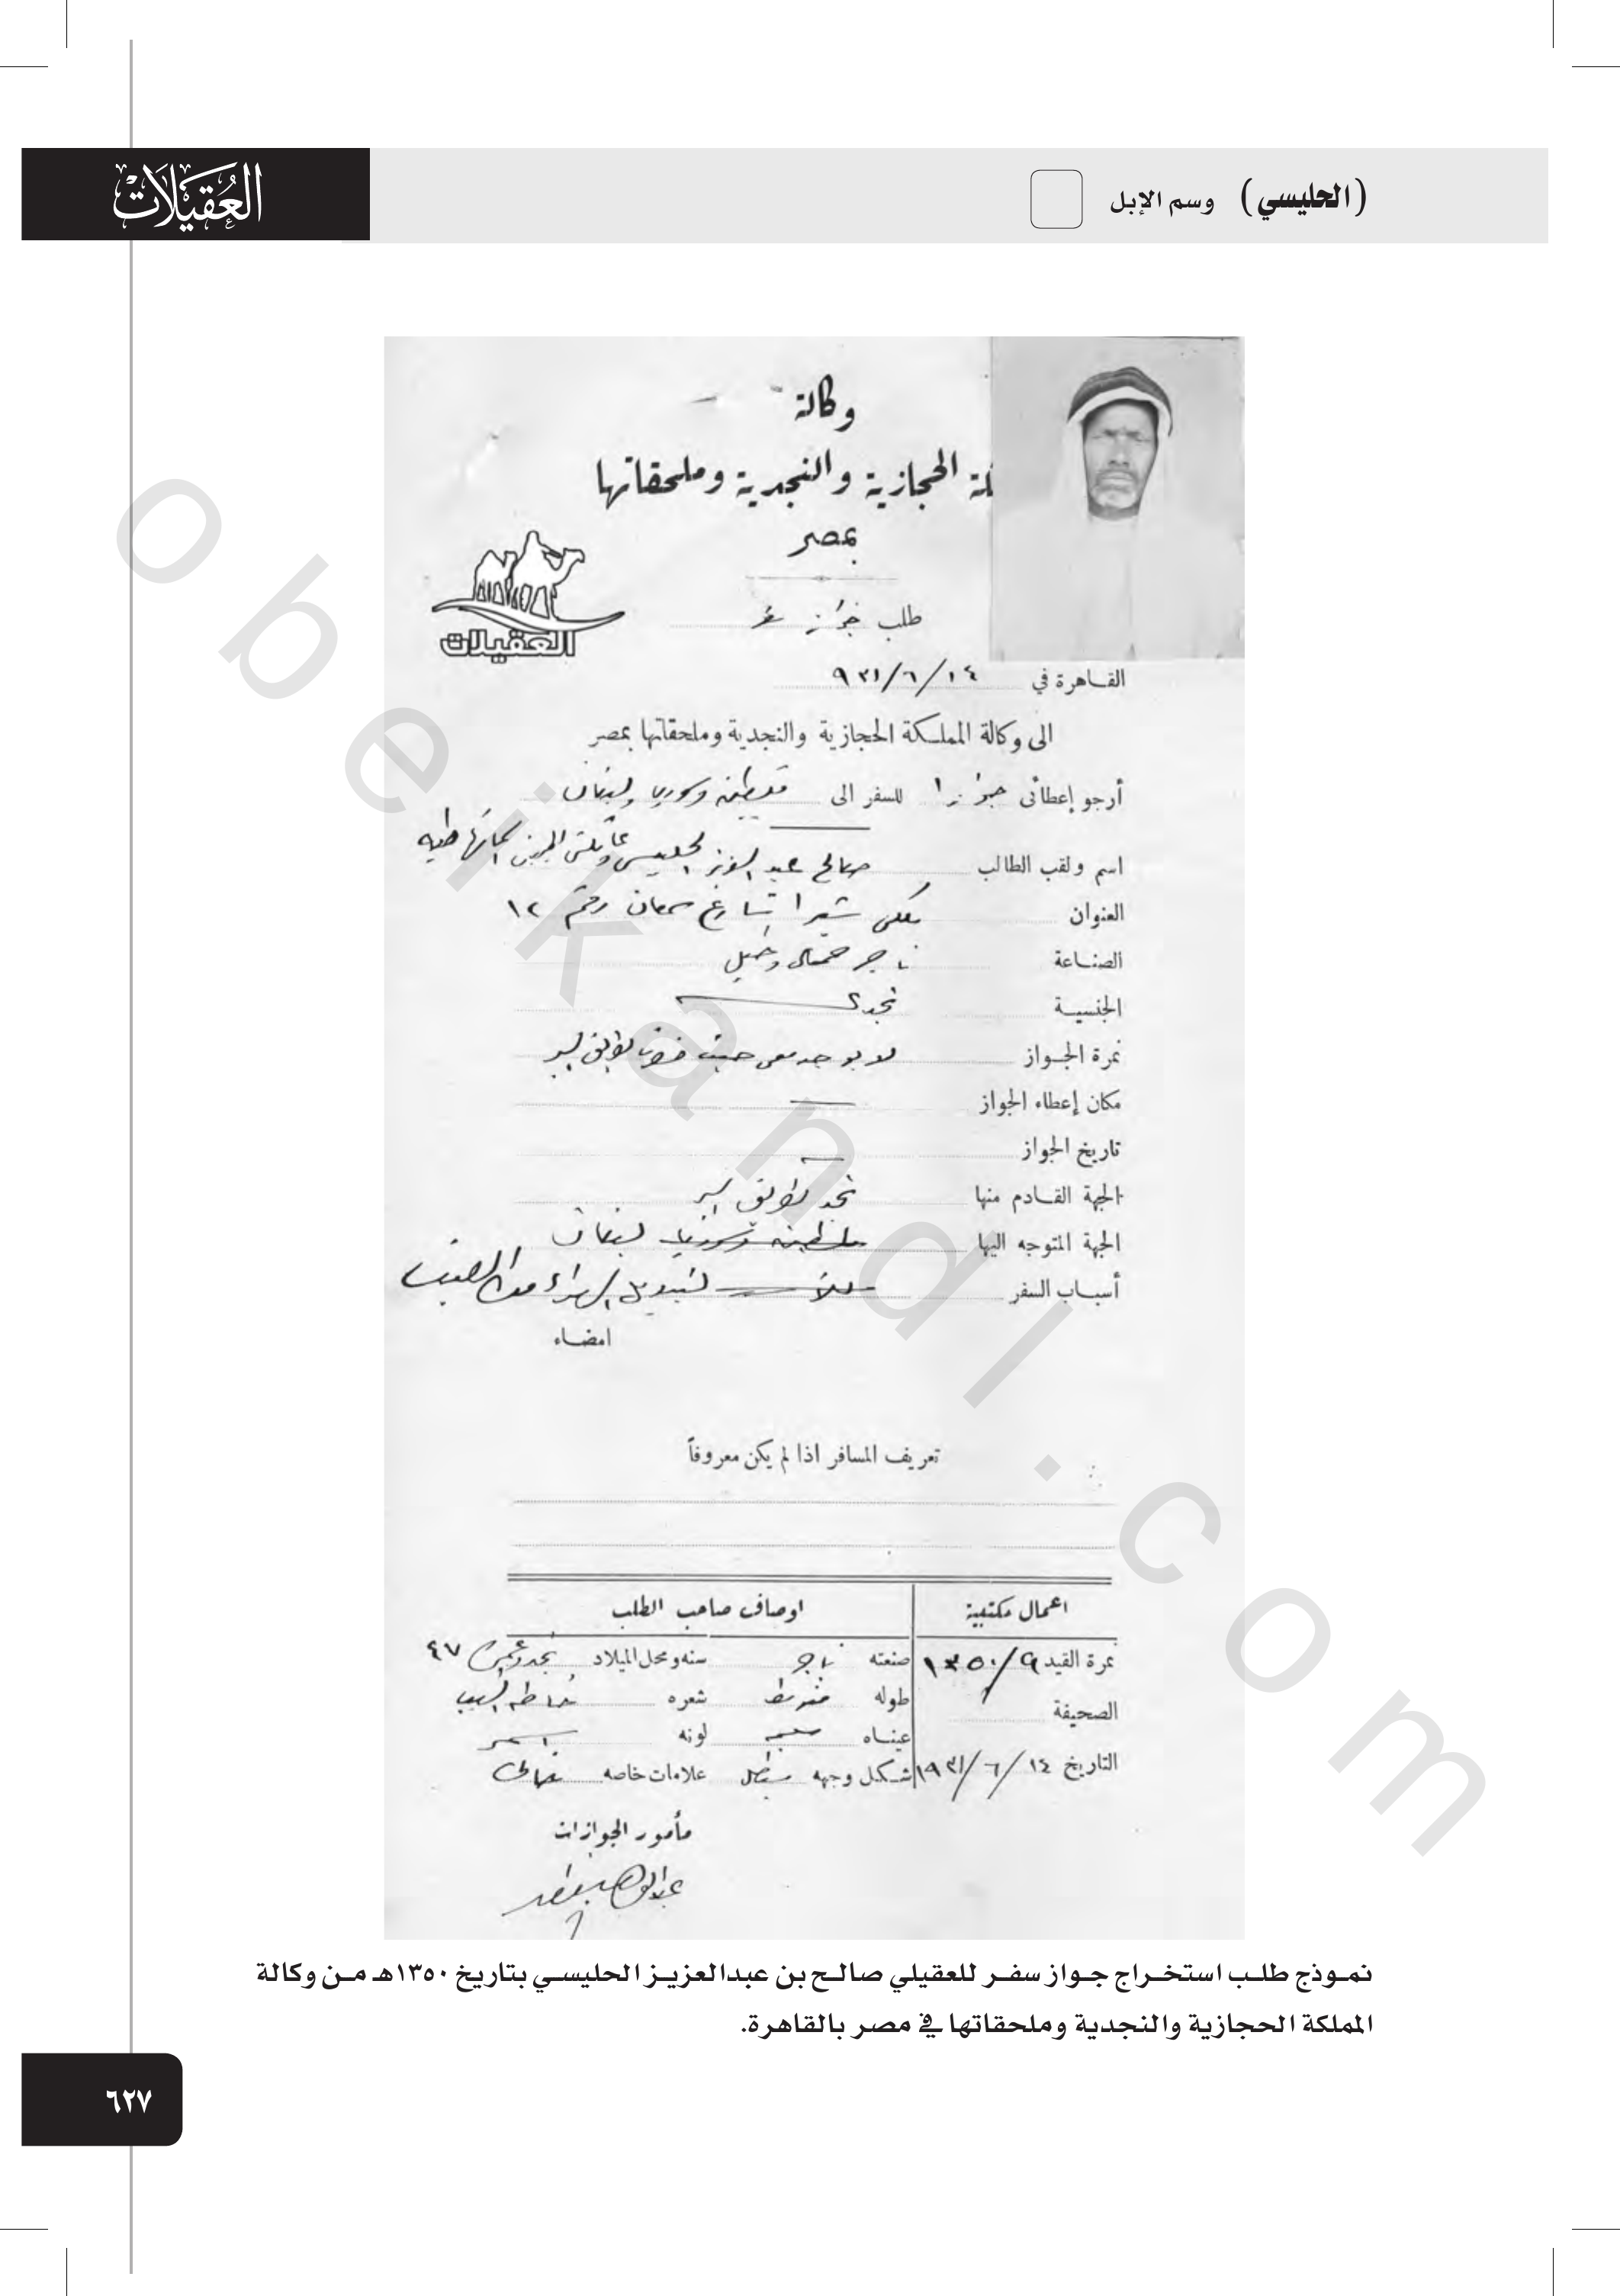 (الحليسي) وسم الإبل
العقيلات
وكالة
كة الحجازية والنجدية وملحقاتها
بمصر
العقيلات
طلب جواز سفر
القاهرة في ١٤/٦/٩٣١
الى وكالة المملكة الحجازية والنجدية وملحقاتها بمصر
أرجو إعطائى جوازا للسفر الى فلسطين وسوريا ولبنان
اسم ولقب الطالب صالح عبد العزيز الحليسي
العنوان شبرا شارع سمعان رقم ١٢
الصناعة تاجر جمال وخيل
الجنسية نجدى
نمرة الجواز لا يوجد معى حيث حضرت بطريق البر
مكان إعطاء الجواز
تاريخ الجواز
الجهة القادم منها نجد بطريق البر
الجهة المتوجه اليها فلسطين وسوريا لبنان
أسباب السفر
امضاء
تعريف المسافر اذا لم يكن معروفاً
اعمال مكتبية
اوصاف صاحب الطلب
نمرة القيد ٩/١٣٥٠ صنعته تاجر سنه ومحل الميلاد نجد ٤٧
الصحيفة طوله شعره
عيناه لونه اسمر
التاريخ ١٤/٦/١٩٣١ شكل وجهه مستطيل علامات خاصه
مأمور الجوازات
نموذج طلب استخراج جواز سفر للعقيلي صالح بن عبدالعزيز الحليسي بتاريخ ١٣٥٠هـ من وكالة
المملكة الحجازية والنجدية وملحقاتها في مصر بالقاهرة.
٦٢٧
obeikandl.com